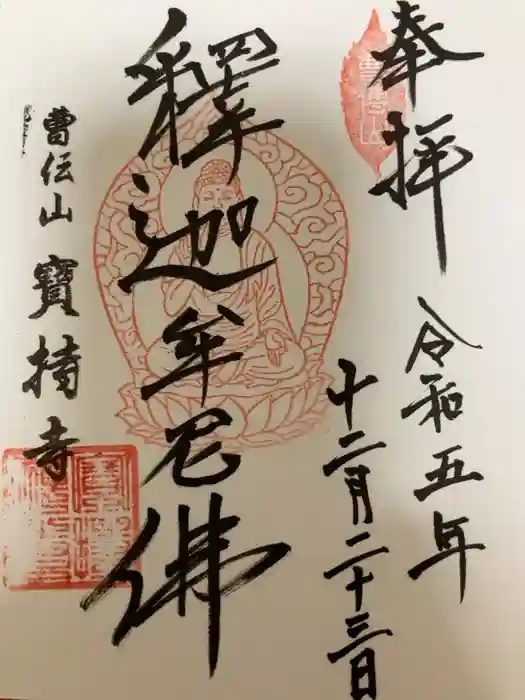 奉拝
令和五年
十二月二十三日
釋迦牟尼佛
曹伝山
寶持寺